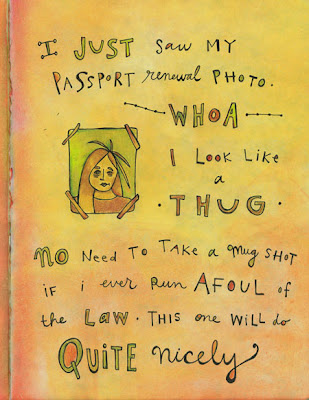 I JUST Saw MY
PASSPORT renewal PHOTO.
WHOA
I Look Like
a
• THUG •
NO Need To Take a Mug SHOT
iF i ever Run AFOUL of
the LAW. THIS one WILL do
QUITE nicely